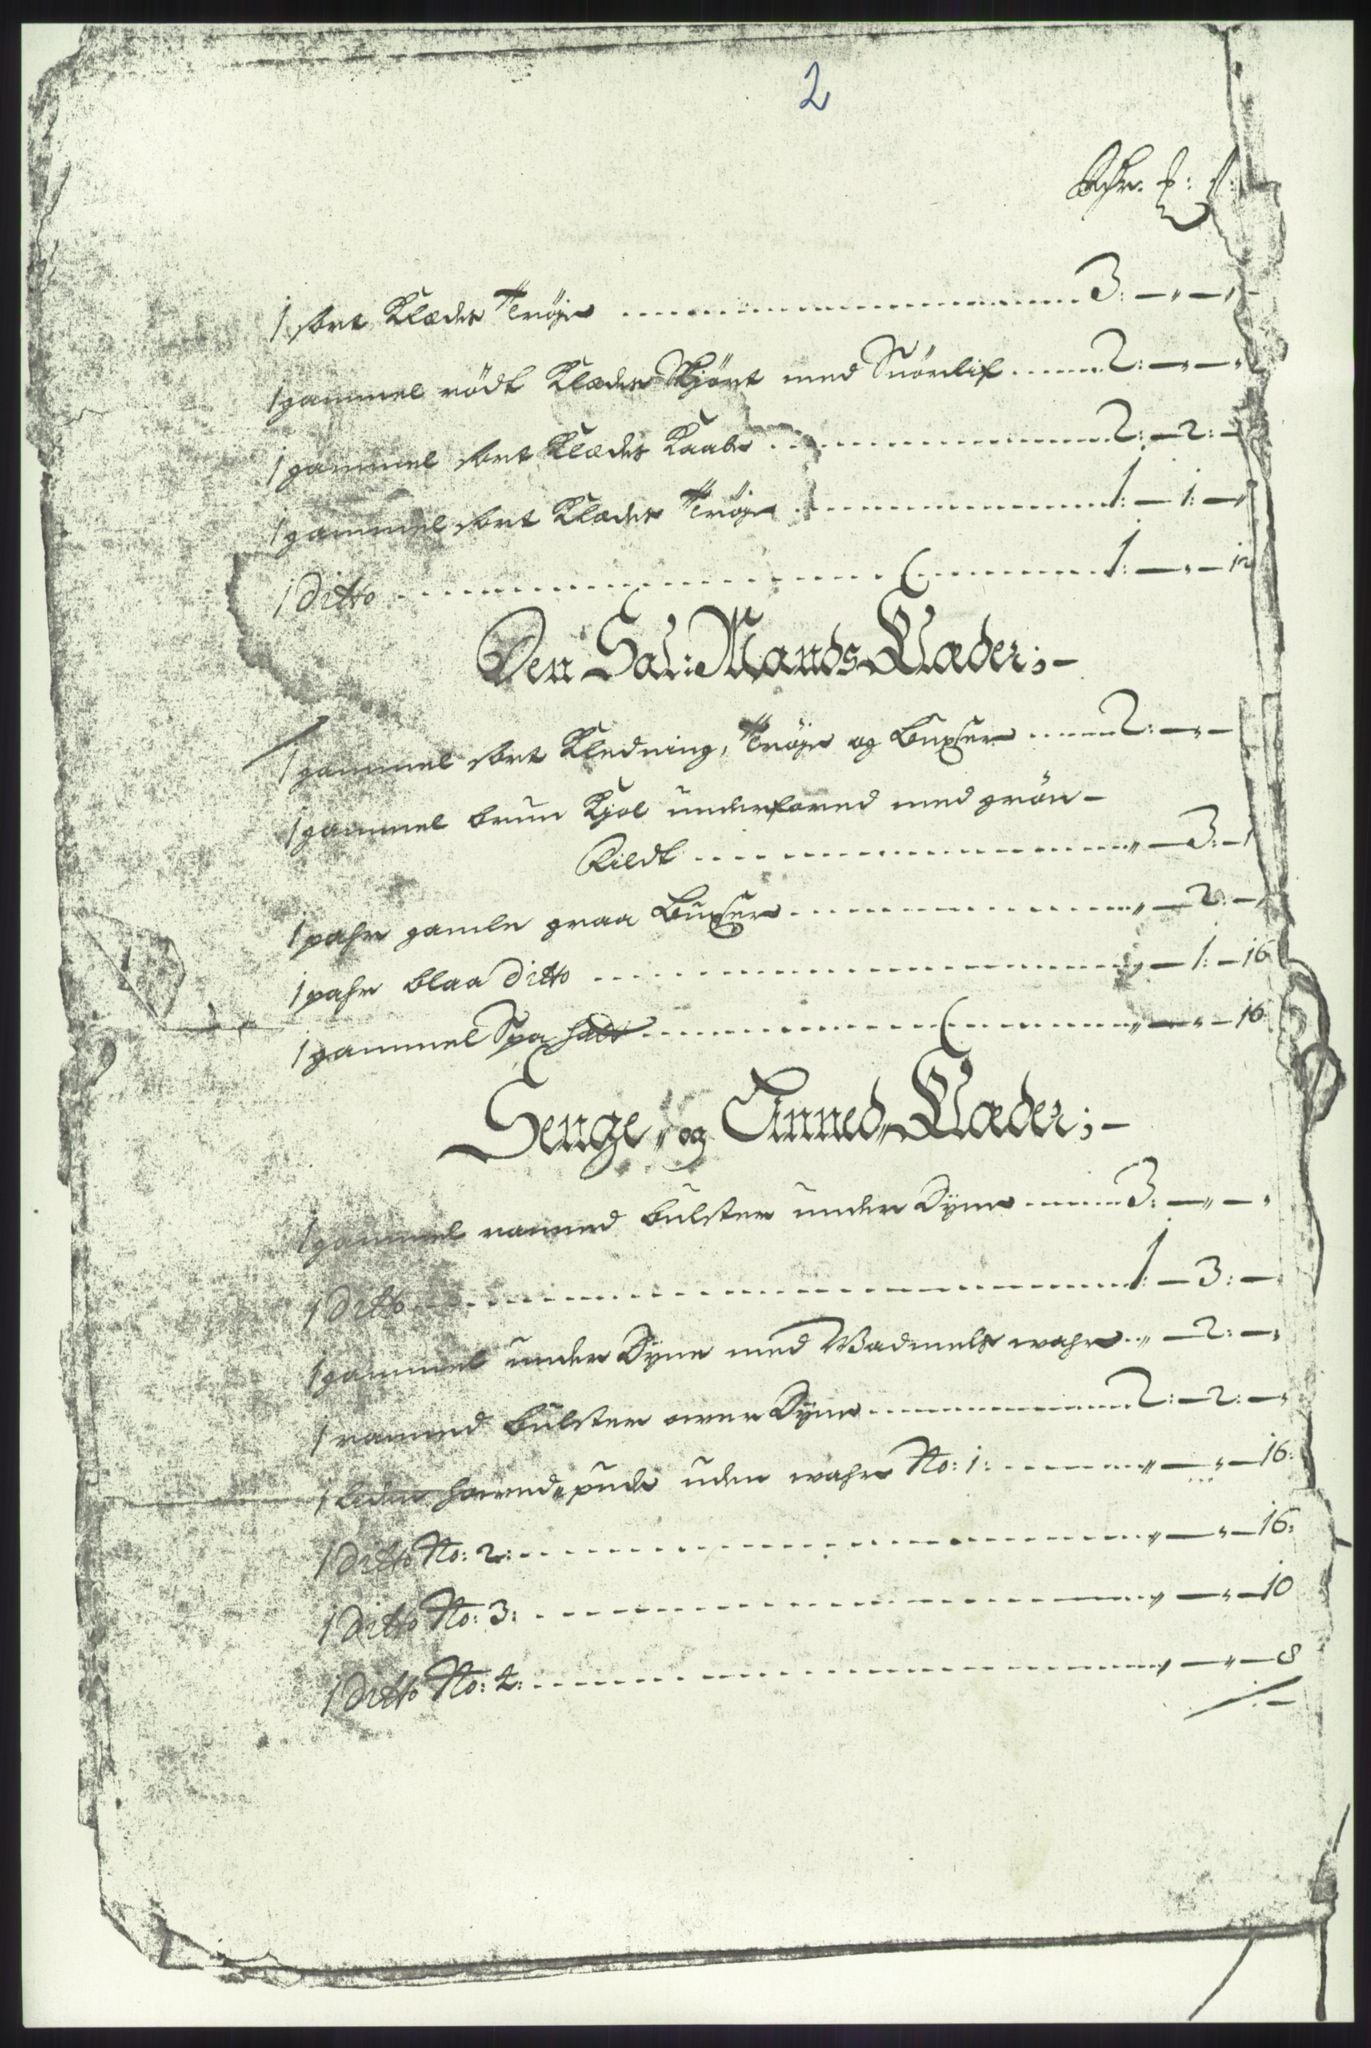 2
Rdr. ß: s:
1 sort Klædes Trøje ... 3: — „ — „
1 gammel rödt Klædes Skjört med Snörlif ... 2: — „ — „
1 gammel sort Klædes Kaabe ... 2: — 2: — „
1 gammel sort Klædes Trøje ... 1: — 1: — „
1 Ditto ... 1: — „ — 12
Den Sal: Mands Klæder; —
1 gammel sort Kledning, Trøje og Buxser ... 2: — „ —
1 gammel brun Kjol underfored med grön —
... „ — 3: —
1 pahr gamle graa Buxser ... „ — 2: — „
1 pahr blaa Ditto ... „ — 1: — 16
1 gammel Spa ... „ — „ — 16
Senge„ og Linned„ Klæder; —
1 gammel ranned bulster under Dyne ... 3: — „ — „
1 Ditto ... 1: — 3: — „
1 gammel under Dyne med Vadmels wahr .. „ — 2: — „
1 ranned bulster over Dyne ... 2: — 2: — „
1 liden hoved„pude uden wahr No: 1: ... „ — „ — 16:
1 Ditto No: 2: ... „ — „ — 16:
1 Ditto No: 3: ... „ — „ — 10
1 Ditto No: 4: ... „ — „ — 8